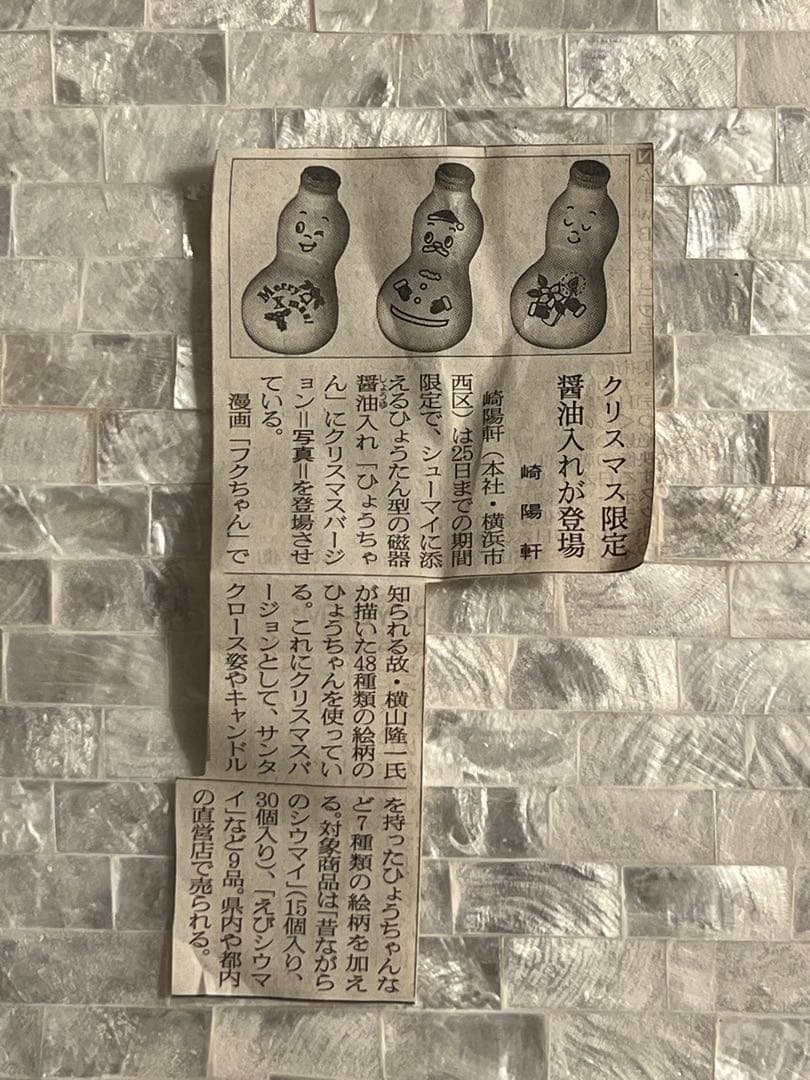 Merry
クリスマス限定
醤油入れが登場
崎陽軒
崎陽軒(本社・横浜市
西区)は25日までの期間
限定で、シューマイに添
えるひょうたん型の磁器
醤油入れ「ひょうちゃ
しょうゆ
ん」にクリスマスバージ
ョン=写真=を登場させ
ている。
漫画「フクちゃん」で
知られる故・横山隆一氏
が描いた48種類の絵柄の
ひょうちゃんを使ってい
る。これにクリスマスバ
ージョンとして、サンタ
クロース姿やキャンドル
を持ったひょうちゃんな
ど7種類の絵柄を加え
る。対象商品は「昔ながら
のシウマイ」(15個入り、
30個入り)、「えびシウマ
イ」など9品。県内や都内
の直営店で売られる。